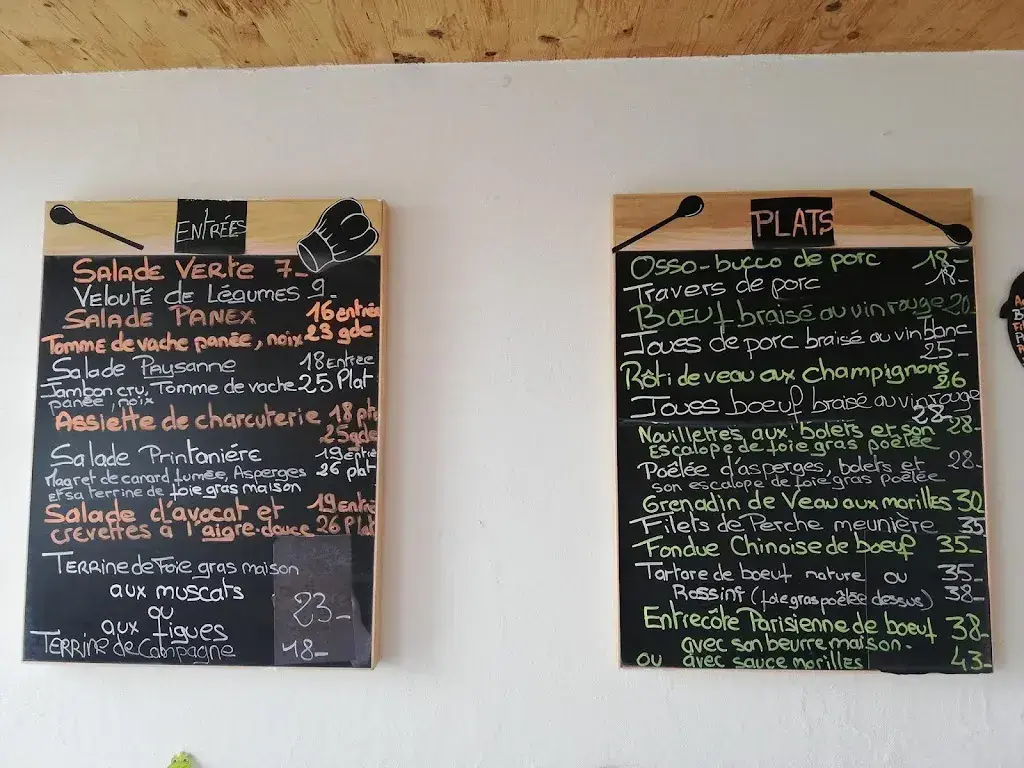 ENTRÉES
SALADE VERTE 7-
VELOUTÉ DE LÉGUMES 9-
SALADE PANEX 16 entrée
23 gde
Tomme de vache panée, noix
Salade Paysanne 18 Entrée
Jambon cru, Tomme de vache 25 Plat
panée, noix
Assiette de charcuterie 18 pte
25 gde
Salade Printanière 19 entrée
26 plat
Magret de canard fumée, Asperges
et sa terrine de foie gras maison
Salade d'avocat et 19 entrée
crevettes à l'aigre-douce 26 Plat
TERRINE de Foie gras maison
aux muscats
ou 23-
aux figues
TERRINE de Campagne 18-
PLATS
Osso-bucco de porc 18-
Travers de porc 18-
BOEUF braisé au vin rouge 20-
Joues de porc braisé au vin blanc
25-
Rôti de veau aux champignons
26
Joues boeuf braisé au vin rouge
28-
Nouillettes aux bolets et son 28-
Escalope de foie gras poêlée
Poêlée d'asperges, bolets et 28-
son escalope de foie gras poêlée
Grenadin de Veau aux morilles 30
Filets de Perche meunière 35
Fondue Chinoise de boeuf 35-
Tartare de boeuf nature ou 35-
Rossini (foie gras poêlée dessus) 38-
Entrecôte Parisienne de boeuf 38-
avec son beurre maison.
ou avec sauce morilles 43-